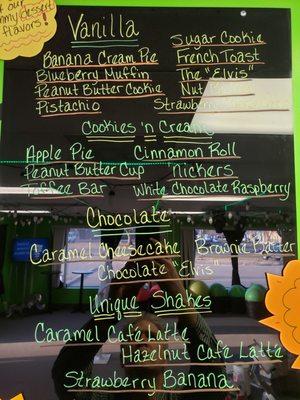 our
yummy dessert
flavors!
Vanilla
Sugar Cookie
Banana Cream Pie
French Toast
Blueberry Muffin
The "Elvis"
Peanut Butter Cookie
Pistachio
Strawberry
Cookies 'n Cream
Apple Pie
Cinnamon Roll
Peanut Butter Cup
nickers
Toffee Bar
White Chocolate Raspberry
Chocolate
Caramel Cheesecake
Brownie Batter
Chocolate "Elvis"
Unique Shakes
Caramel Cafe Latte
Hazelnut Cafe Latte
Strawberry Banana